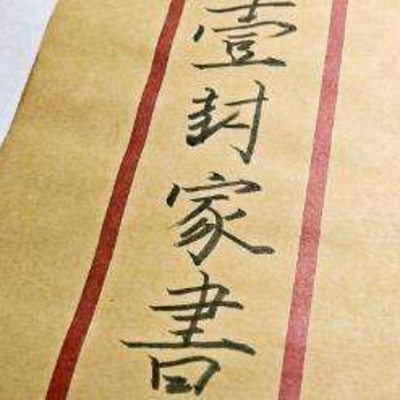 壹封家書